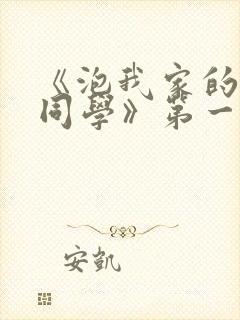 《泡我家的
同學》第一
安凱